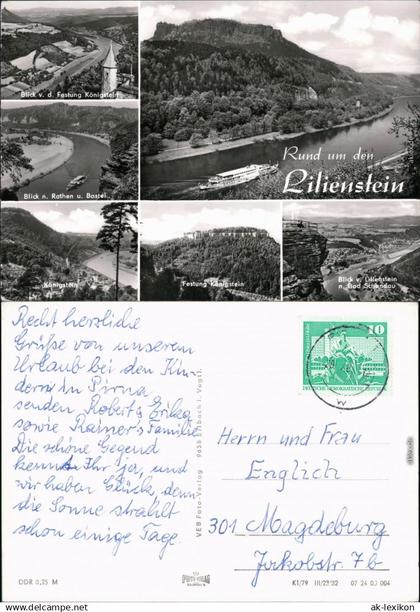 Blick v. d. Festung Königstein
Blick n. Rathen u. Bastei
Rund um den
Lilienstein
Königstein
Festung Königstein
Blick v. Lilienstein
n. Bad Schandau
Recht herzliche
Grüße von unserem
Urlaub bei den Kin-
dern in Pirna
senden Robert &
sowie Rainer's Familie
Die schöne Gegend
kennt Ihr ja, und
wir haben Glück, denn
die Sonne strahlt
schon einige Tage.
DDR 0,25 M
VEB Foto-Verlag
10
DEUTSCHE DEMOKRATISCHE REPUBLIK
Herrn und Frau
Englich
301 Magdeburg
Jakobstr. 7b
K1/79 III/23/32 07 24 03 004
© ak-ansichtskarten.de / ak-lexikon.com